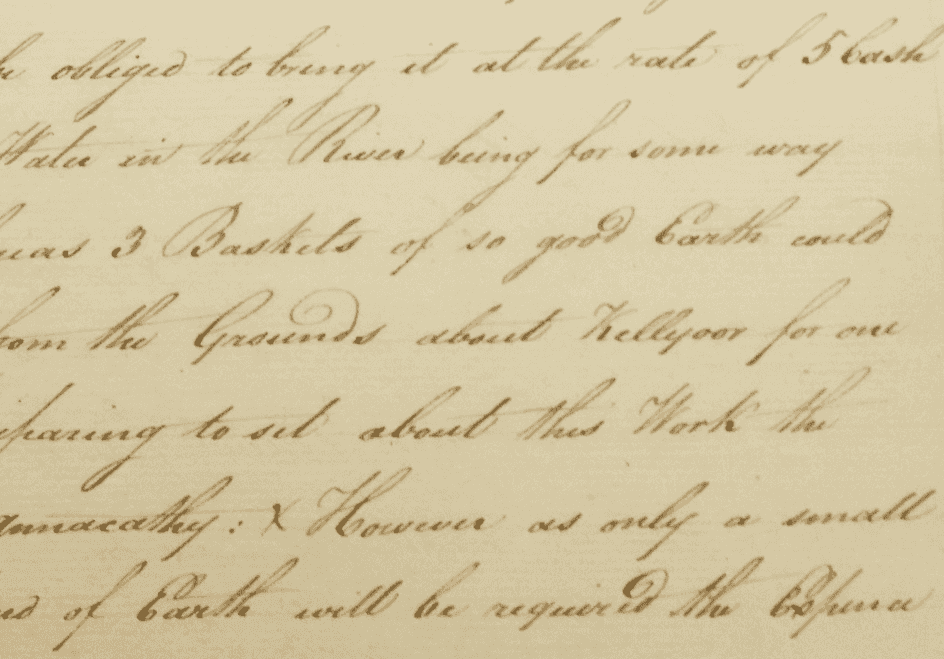 obliged to bring it at the rate of 5 Cash
Water in the River being for some way
3 Baskets of so good Earth could
from the Grounds about Kellyoor for one
to set about this Work the
However as only a small
of Earth will be required the Expence